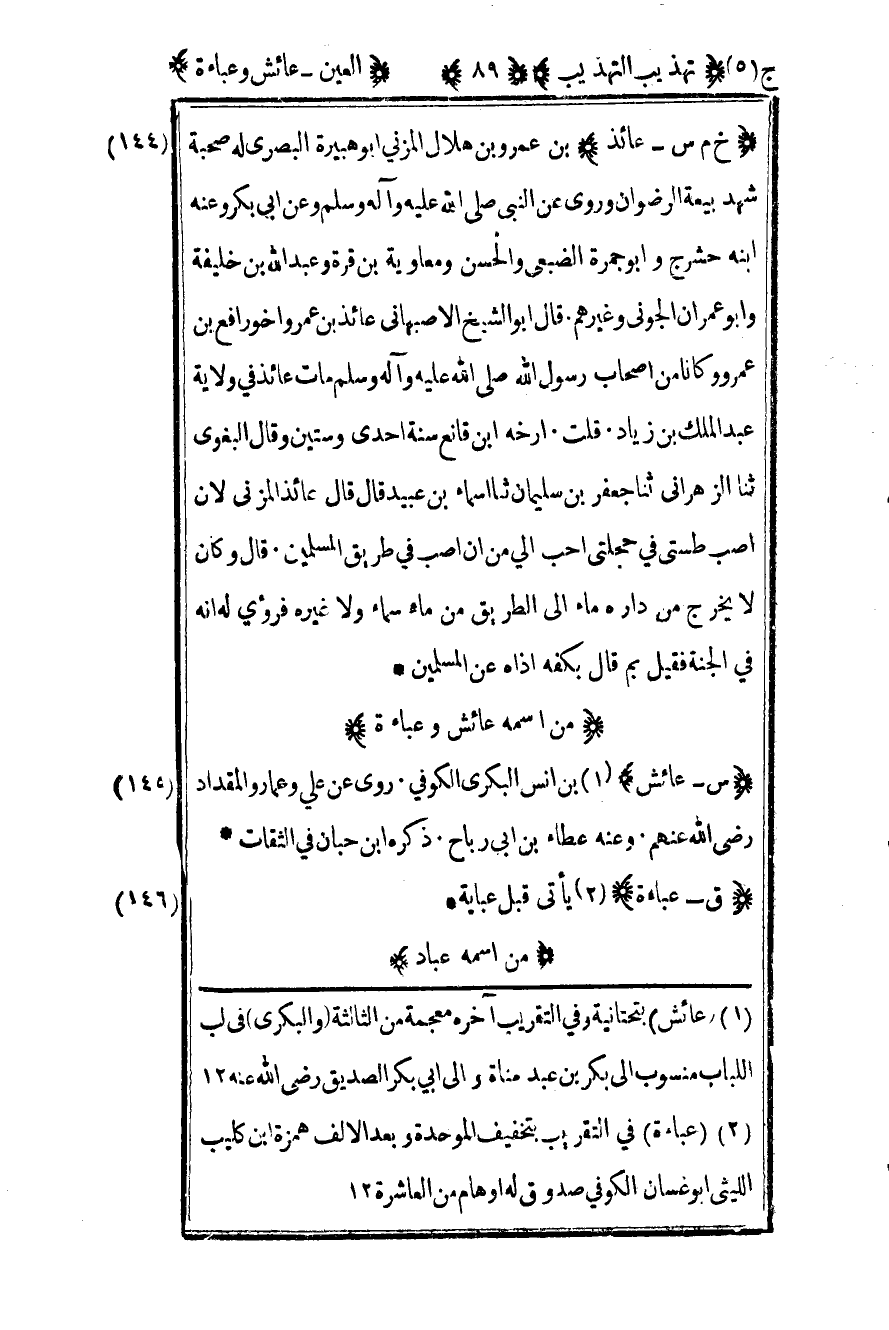 ج (٥) ﴿ تهذيب التهذيب ﴾ ﴿ ٨٩ ﴾ ﴿ العين ـ عائش وعباءة ﴾
﴿ خ م س ـ عائذ ﴾ بن عمرو بن هلال المزني ابو هبيرة البصرى له صحبة (١٤٤)
شهد بيعة الرضوان وروى عن النبى صلى الله عليه وآله وسلم وعن ابي بكر وعنه
ابنه حشرج و ابو جمرة الضبعى والحسن ومعاوية بن قرة وعبد الله بن خليفة
وابو عمران الجونى وغيرهم ٠ قال ابو الشيخ الاصبهانى عائذ بن عمرو اخو رافع بن
عمرو وكانا من اصحاب رسول الله صلى الله عليه وآله وسلم مات عائذ في ولاية
عبد الملك بن زياد ٠ قلت ٠ ارخه ابن قانع سنة احدى وستين وقال البغوى
ثنا الزهرانى ثنا جعفر بن سليمان ثنا اسماء بن عبيد قال قال عائذ المزنى لان
اصب طستى في حجلتى احب الي من ان اصب في طريق المسلمين ٠ قال وكان
لا يخرج من داره ماء الى الطريق من ماء سماء ولا غيره فروٴي له انه
في الجنة فقيل بم قال بكفه اذاه عن المسلمين *
﴿ من اسمه عائش و عباءة ﴾
﴿ س ـ عائش ﴾ (١) بن انس البكرى الكوفي ٠ روى عن علي وعمار والمقداد (١٤٥)
رضى الله عنهم ٠ وعنه عطاء بن ابى رباح ٠ ذكره ابن حبان في الثقات *
﴿ ق ـ عباءة ﴾ (٢) يأتى قبل عباية * (١٤٦)
﴿ من اسمه عباد ﴾
(١) (عائش) بتحتانية وفي التقريب آخره معجمة من الثالثة (والبكرى) فى لب
اللباب منسوب الى بكر بن عبد مناة و الى ابي بكر الصديق رضى الله عنه ١٢
(٢) (عباءة) في التقريب بتخفيف الموحدة و بعد الالف همزة ابن كليب
الليثى ابو غسان الكوفي صدوق له اوهام من العاشرة ١٢